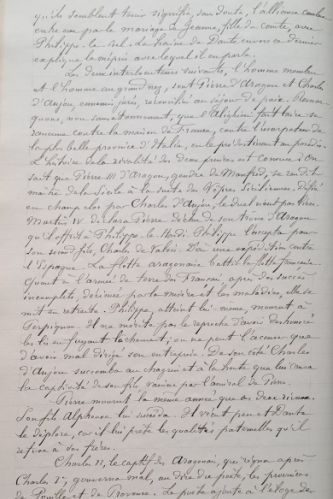 qu'ils semblent tenir signifie, sans doute, l'alliance con
entre eux par le mariage de Jeanne, fille du comte, avec
Philippe le Bel. La haine de Dante envers ce dernier
explique le mépris avec lequel il en parle.
Les deux interlocuteurs suivants, l'homme membru
et l'homme au grand nez, sont Pierre d'Aragon et Charles
d'Anjou, ennemis jurés, réconciliés au séjour de paix. Remar
quons, non sans étonnement, que l'Alighieri fait taire sa
rancune contre la maison de France, contre l'usurpateur de
la plus belle province d'Italie, en le présentant au paradis.
L'histoire de la rivalité des deux princes est connue. On
sait que Pierre III d'Aragon, gendre de Manfred, se rendit
maître de la Sicile à la suite des Vêpres Siciliennes. Défié
en champ clos par Charles d'Anjou, le duel n'eut pas lieu.
Martin IV déclara Pierre déchu de son trône d'Aragon
qu'il offrit à Philippe le Hardi. Philippe l'accepta pour
son second fils, Charles de Valois. D'où une expédition contre
l'Espagne. La flotte aragonaise battit la flotte française.
Quant à l'armée de terre des Français après des succès
incomplets, décimée par la misère et les maladies, elle se
mit en retraite. Philippe, atteint lui-même, mourut à
Perpignan. Il ne mérita pas le reproche d'avoir déshonoré
les lis en fuyant lâchement; on ne peut l'accuser que
d'avoir mal dirigé son entreprise. De son côté Charles
d'Anjou succomba au chagrin et à la honte que lui causa
la captivité de son fils, vaincu par l'amiral de Pierre.
Pierre mourut la même année que ses deux
Son fils Alphonse lui succéda. Il vécut peu et Dante
le déplore, car il lui prête les qualités paternelles qu'il
refuse à ses frères.
Charles II, le captif des Aragonais, qui régna après
Charles Ier, gouverne mal, au dire du poète, les provinces
de Pouille et de Provence. Le poète ajoute à l'éloge de